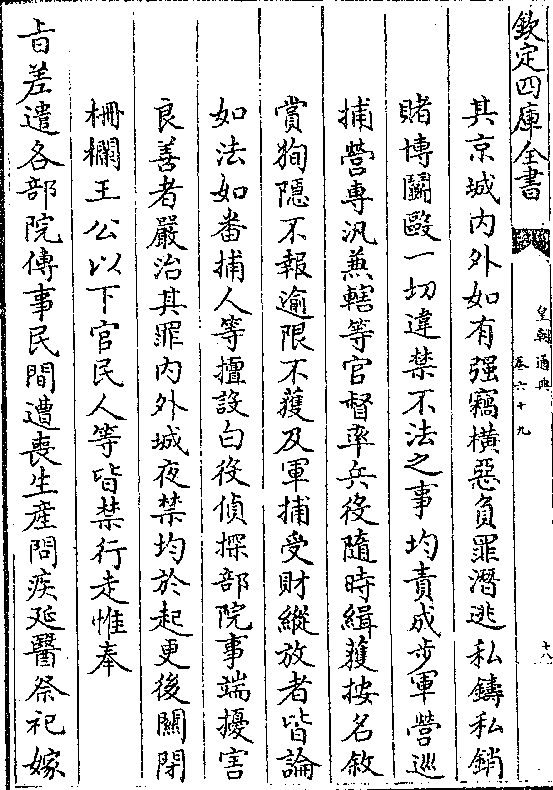 欽定四庫全書
皇朝通典
卷六十九
十八
其京城内外如有强竊橫惡負罪潛逃私鑄私銷
賭博鬭毆一切違禁不法之事均責成步軍營巡
捕營專汛兼轄等官督率兵役隨時緝獲按名敘
賞狥隱不報逾限不獲及軍捕受財縱放者皆論
如法如番捕人等擅設白役偵探部院事端擾害
良善者嚴治其罪内外城夜禁均於起更後關閉
柵欄王公以下官民人等皆禁行走惟奉
㫖差遣各部院傳事民間遭喪生產問疾延醫祭祀嫁